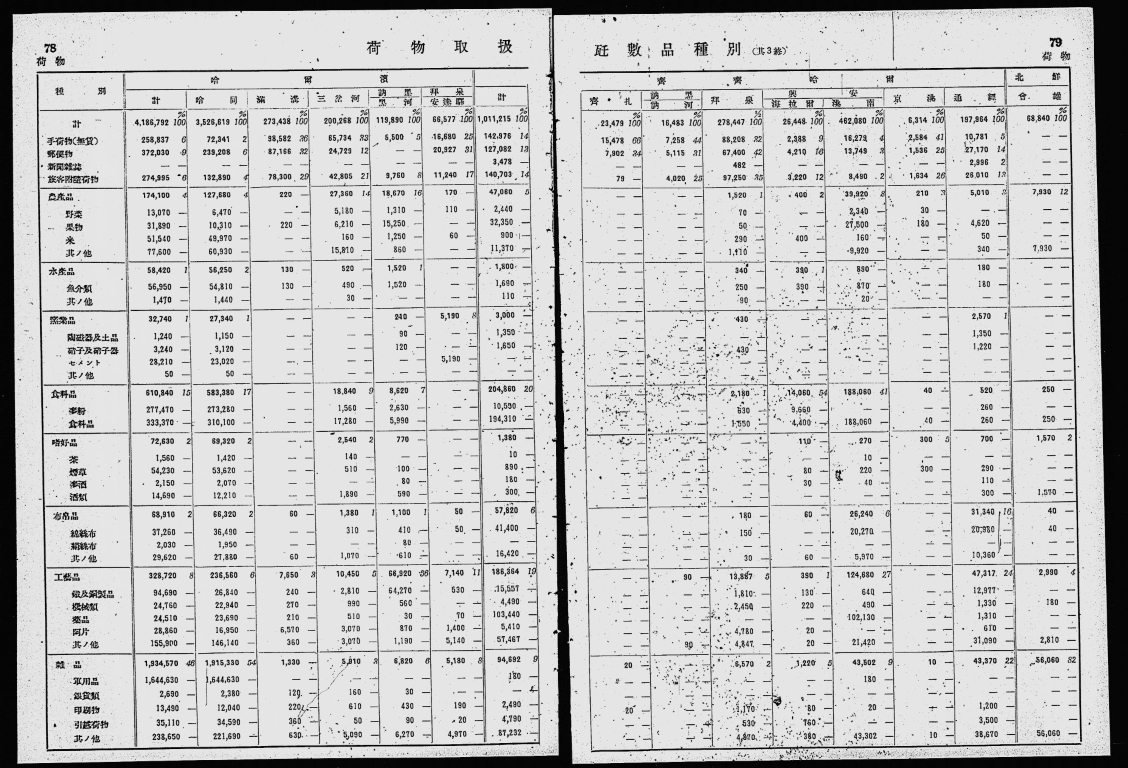 78
荷物
荷物取扱
種別 哈爾濱
計 哈同 濱 三岔河 訥黑 黑河 拜泉 安達 計
% % % % % % %
計 4,186,792 100 3,526,619 100 273,438 100 200,268 100 119,890 100 66,577 100 1,011,215 100
手荷物(無賃) 258,837 6 72,341 2 98,582 36 65,734 33 5,500 5 16,680 25 142,976 14
郵便物 372,030 9 239,208 6 87,166 32 24,729 12 — — 20,927 31 127,082 13
新聞雜誌 — — — — — — — — — — — — 3,478 —
旅客附隨荷物 274,995 6 132,890 4 78,300 29 42,805 21 9,760 8 11,240 17 140,703 14
農產品 174,100 4 127,680 4 220 — 27,360 14 18,670 16 170 — 47,060 5
野菜 13,070 — 6,470 — — — 5,180 — 1,310 — 110 — 2,440 —
果物 31,890 — 10,310 — 220 — 6,210 — 15,250 — — — 32,350 —
米 51,540 — 49,970 — — — 160 — 1,250 — 60 — 900 —
其ノ他 77,600 — 60,930 — — — 15,810 — 860 — — — 11,370 —
水產品 58,420 1 56,250 2 130 — 520 — 1,520 1 — — 1,800 —
魚介類 56,950 — 54,810 — 130 — 490 — 1,520 — — — 1,690 —
其ノ他 1,470 — 1,440 — — — 30 — — — — — 110 —
窯業品 32,740 1 27,340 1 — — — — 240 — 5,190 8 3,000 —
陶磁器及土品 1,240 — 1,150 — — — — — 90 — — — 1,350 —
硝子及硝子器 3,240 — 3,120 — — — — — 120 — — — 1,650 —
セメント 28,210 — 23,020 — — — — — — — 5,190 — — —
其ノ他 50 — 50 — — — — — — — — — — —
食料品 610,840 15 583,380 17 — — 18,840 9 8,620 7 — — 204,860 20
麥粉 277,470 — 273,280 — — — 1,560 — 2,630 — — — 10,550 —
食料品 333,370 — 310,100 — — — 17,280 — 5,990 — — — 194,310 —
嗜好品 72,630 2 69,320 2 — — 2,540 2 770 — — — 1,380 —
茶 1,560 — 1,420 — — — 140 — — — — — 10 —
煙草 54,230 — 53,620 — — — 510 — 100 — — — 890 —
麥酒 2,150 — 2,070 — — — — — 80 — — — 180 —
酒類 14,690 — 12,210 — — — 1,890 — 590 — — — 300 —
布帛品 68,910 2 66,320 2 60 — 1,380 1 1,100 1 50 — 57,820 6
綿絲布 37,260 — 36,490 — — — 310 — 410 — 50 — 41,400 —
絹絲布 2,030 — 1,950 — — — — — 80 — — — — —
其ノ他 29,620 — 27,880 — 60 — 1,070 — 610 — — — 16,420 —
工藝品 328,720 8 236,560 6 7,650 3 10,450 5 66,920 56 7,140 11 186,364 19
鐵及鋼製品 94,690 — 26,840 — 240 — 2,810 — 64,270 — 530 — 15,557 —
機械類 24,760 — 22,940 — 270 — 990 — 560 — — — 4,490 —
藥品 24,510 — 23,690 — 210 — 510 — 30 — 70 — 103,440 —
阿片 28,860 — 16,950 — 6,570 — 3,070 — 870 — 1,400 — 5,410 —
其ノ他 155,900 — 146,140 — 360 — 3,070 — 1,190 — 5,140 — 57,467 —
雜品 1,934,570 46 1,915,330 54 1,330 — 5,910 3 6,820 6 5,180 8 94,692 9
軍用品 1,644,630 — 1,644,630 — — — — — — — — — 180 —
銀貨類 2,690 — 2,380 — 120 — 160 — 30 — — — —
印刷物 13,490 — 12,040 — 220 — 610 — 430 — 190 — 2,490 —
引越荷物 35,110 — 34,590 — 360 — 50 — 90 — 20 — 4,790 —
其ノ他 238,650 — 221,690 — 630 — 5,090 — 6,270 — 4,970 — 87,232 —
79
荷物
瓩數品種別(其3終)
齊齊哈爾 北鮮
齊・札 訥黑 訥河 拜泉 興安 海拉爾 洮南 京 通 會 雄
% % % % % % % %
23,479 100 16,483 100 278,447 100 26,448 100 462,080 100 6,314 100 197,864 100 68,840 100
15,478 66 7,258 44 88,208 32 2,388 9 16,278 4 2,584 41 10,781 5 — —
7,902 34 5,115 31 67,400 42 4,210 16 13,749 3 1,536 25 27,170 14 — —
— — — — 482 — — — — — — — 2,996 2 — —
79 — 4,020 25 97,250 35 3,220 12 8,490 2 1,634 26 26,010 13 — —
— — — — 1,520 1 400 2 39,920 8 210 3 5,010 3 7,930 12
— — — — 70 — — — 2,340 — 30 — — — — —
— — — — 50 — — — 27,500 — 180 — 4,620 — — —
— — — — 290 — 400 — 160 — — — 50 — — —
— — — — 1,110 — — — 9,920 — — — 340 — 7,930 —
— — — — 340 — 390 1 890 — — — 180 — — —
— — — — 250 — 390 — 870 — — — 180 — — —
— — — — 90 — — — 20 — — — — — — —
— — — — 430 — — — — — — — 2,570 1 — —
— — — — — — — — — — — — 1,350 — — —
— — — — 430 — — — — — — — 1,220 — — —
— — — — — — — — — — — — — — — —
— — — — — — — — — — — — — — — —
— — — — 2,180 1 14,060 54 188,060 41 40 — 520 — 250 —
— — — — 630 — 9,660 — — — — — 260 — — —
— — — — 1,550 — 4,400 — 188,060 — 40 — 260 — 250 —
— — — — — — 110 — 270 — 300 5 700 — 1,570 2
— — — — — — — — 10 — — — — — — —
— — — — — — 80 — 220 — 300 — 290 — — —
— — — — — — 30 — 40 — — — 110 — — —
— — — — — — — — — — — — 300 — 1,570 —
— — — — 180 — 60 — 26,240 6 — — 31,340 16 40 —
— — — — 150 — — — 20,270 — — — 20,980 — 40 —
— — — — — — — — — — — — — — — —
— — — — 30 — 60 — 5,970 — — — 10,360 — — —
— — 90 — 13,887 5 390 1 124,680 27 — — 47,317 24 2,990 4
— — — — 1,810 — 130 — 640 — — — 12,977 — — —
— — — — 2,450 — 220 — 490 — — — 1,330 — 180 —
— — — — — — — — 102,130 — — — 1,310 — — —
— — — — 4,780 — 20 — — — — — 610 — — —
— — 90 — 4,847 — 20 — 21,420 — — — 31,090 — 2,810 —
20 — — — 6,570 2 1,220 5 43,502 9 10 — 43,370 22 56,060 82
— — — — — — — — 180 — — — — — — —
— — — — — — — — — — — — — — — —
20 — — — 1,170 — 80 — 20 — — — 1,200 — — —
— — — — 530 — 760 — — — — — 3,500 — — —
— — — — 4,870 — 380 — 43,302 — 10 — 38,670 — 56,060 —